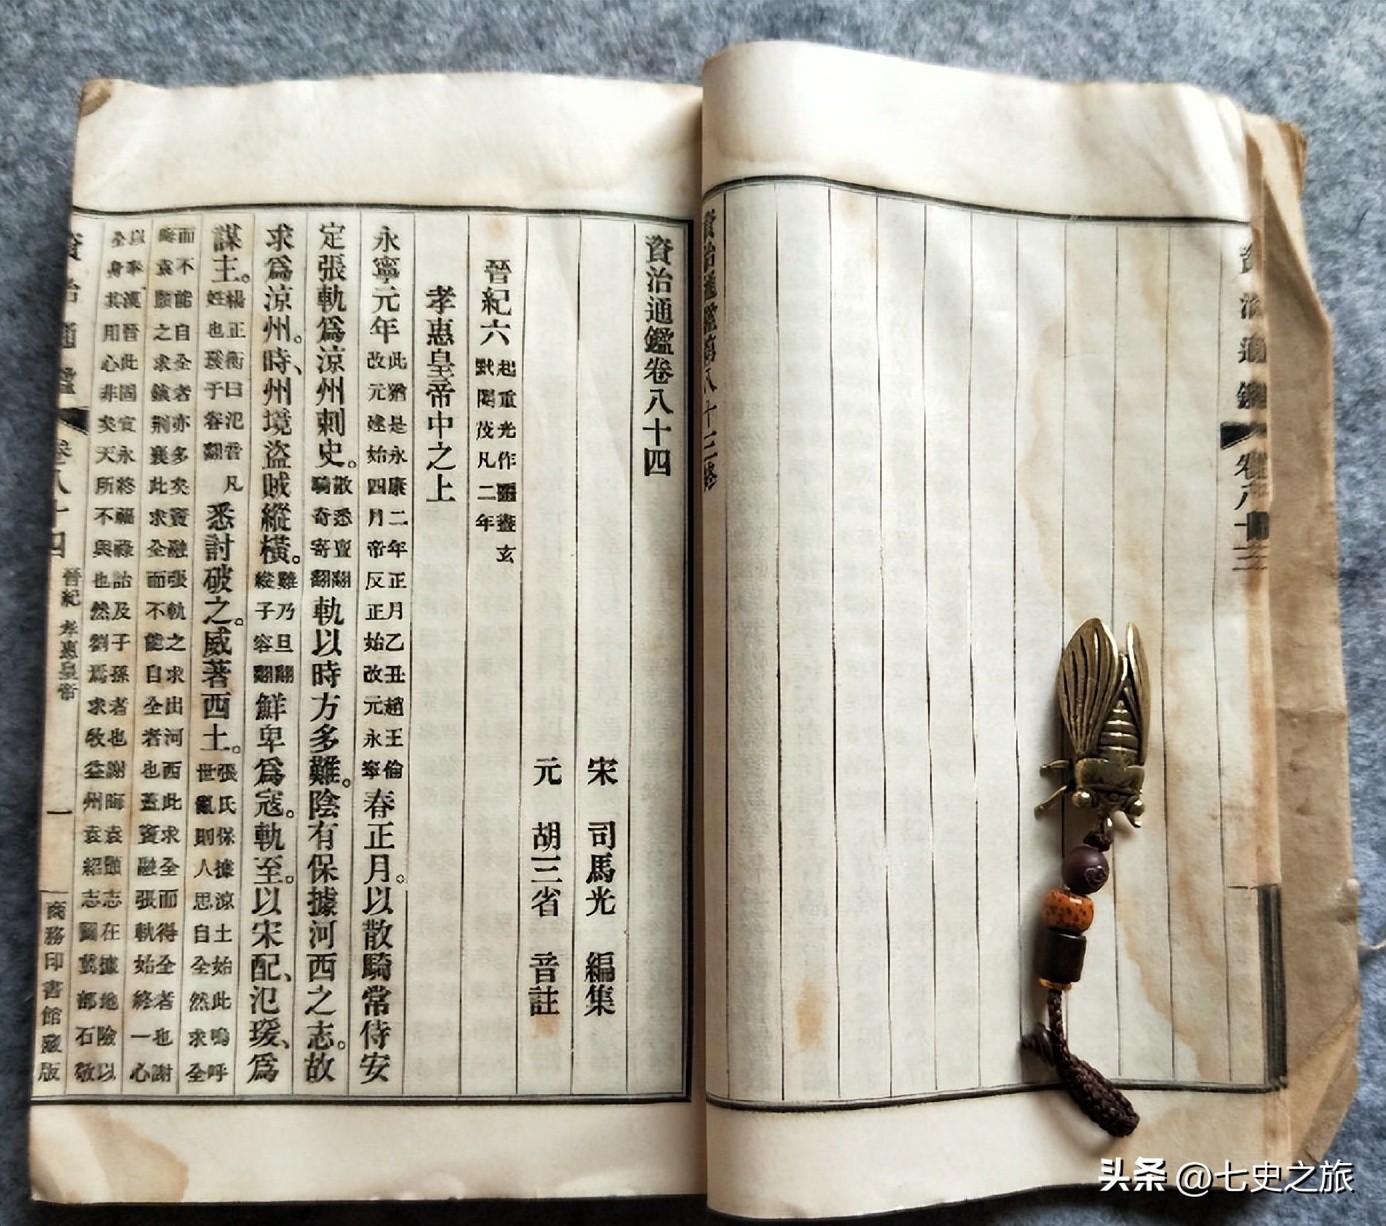 資治通鑑
卷八十三
資治通鑑第八十三終
資治通鑑卷八十四
宋 司馬光 編集
元 胡三省 音註
晉紀六 起重光作噩盡玄黓閹茂凡二年
孝惠皇帝中之上
永寧元年 此猶是永康二年正月乙丑趙王倫改元建始四月帝反正始改元永寧 春正月。以散騎常侍安
定張軌爲涼州刺史。 散悉亶翻騎奇寄翻 軌以時方多難。陰有保據河西之志。故
求爲涼州。時、州境盜賊縱橫。 難乃旦翻縱子容翻 鮮卑爲寇。軌至。以宋配、氾瑗、爲
謀主。 楊正衡曰氾音凡姓也瑗于眷翻 悉討破之。威著西土。 張氏保據涼土始此嗚呼世亂則人思自全然求全
而不能自全者亦多矣竇融張軌之求出河西此求全而得全者也謝
晦袁顗之求鎮荆襄此求全而不能自全者也蓋竇融張軌始終一心
以奉漢晉此固宜永終福祿詒及子孫者也謝晦袁顗志在據地險以
全身其用心非矣天所不與也然劉焉求牧益州袁紹志圖冀部石敬
資治通鑑 卷八十四 晉紀 孝惠皇帝 一 商務印書館藏版
头条 @七史之旅